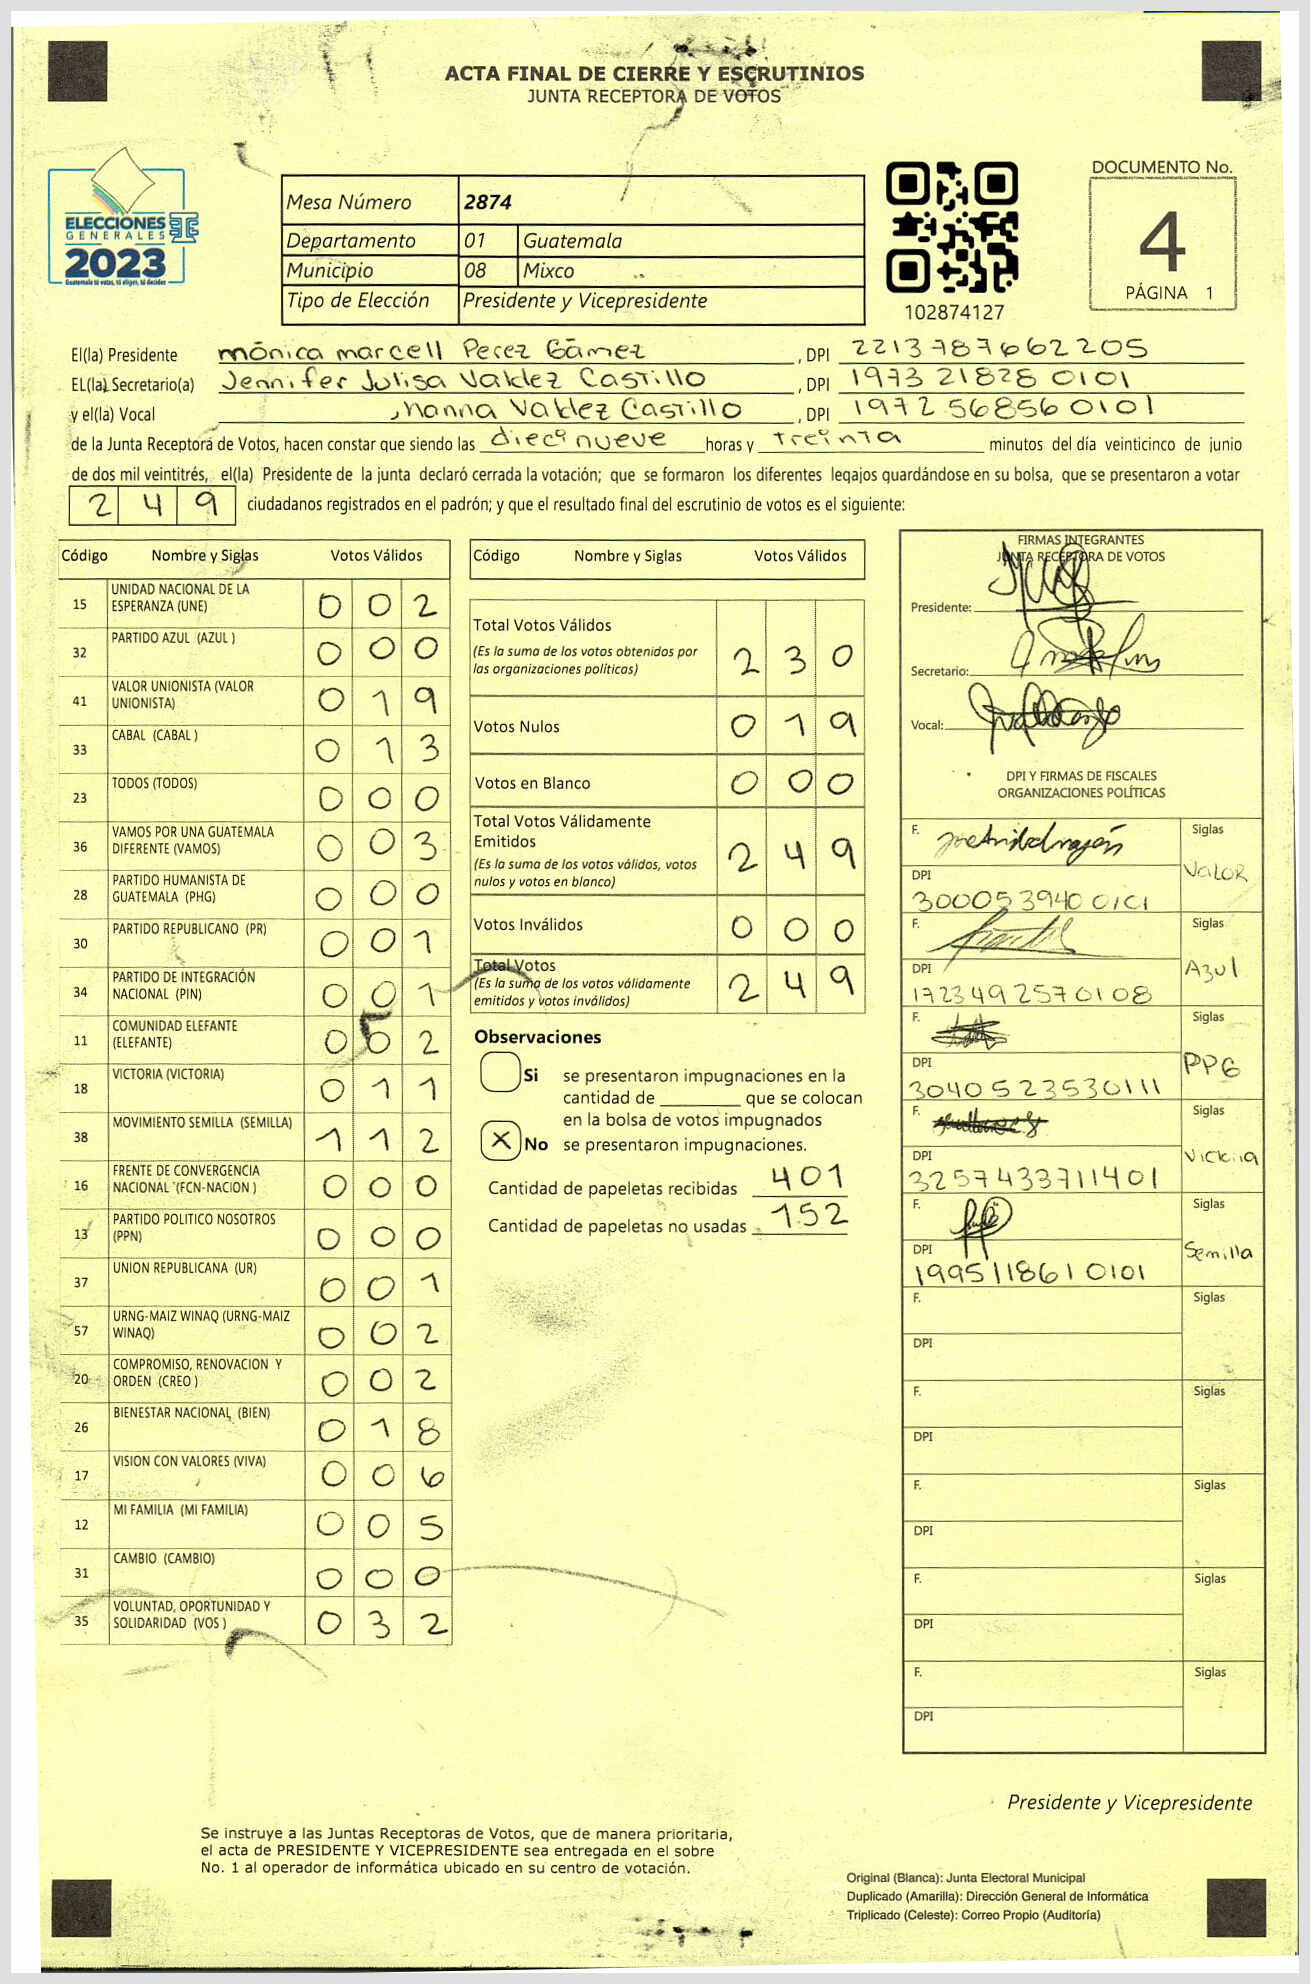 ACTA FINAL DE CIERRE Y ESCRUTINIOS
JUNTA RECEPTORA DE VOTOS
ELECCIONES
GENERALES
2023
Guatemala tú votas, tú eliges, tú decides
Mesa Número 2874
Departamento 01 Guatemala
Municipio 08 Mixco
Tipo de Elección Presidente y Vicepresidente
102874127
DOCUMENTO No.
4
PÁGINA 1
El(la) Presidente mónica marcell Perez Gámez, DPI 2213787662205
EL(la) Secretario(a) Jennifer Julisa Valdez Castillo, DPI 1973 21828 0101
y el(la) Vocal Jhanna Valdez Castillo, DPI 1972 56856 0101
de la Junta Receptora de Votos, hacen constar que siendo las diecinueve horas y treinta minutos del día veinticinco de junio
de dos mil veintitrés, el(la) Presidente de la junta declaró cerrada la votación; que se formaron los diferentes legajos guardándose en su bolsa, que se presentaron a votar
249 ciudadanos registrados en el padrón; y que el resultado final del escrutinio de votos es el siguiente:
Código Nombre y Siglas Votos Válidos
15 UNIDAD NACIONAL DE LA ESPERANZA (UNE) 0 0 2
32 PARTIDO AZUL (AZUL ) 0 0 0
41 VALOR UNIONISTA (VALOR UNIONISTA) 0 1 9
33 CABAL (CABAL ) 0 1 3
23 TODOS (TODOS) 0 0 0
36 VAMOS POR UNA GUATEMALA DIFERENTE (VAMOS) 0 0 3
28 PARTIDO HUMANISTA DE GUATEMALA (PHG) 0 0 0
30 PARTIDO REPUBLICANO (PR) 0 0 1
34 PARTIDO DE INTEGRACIÓN NACIONAL (PIN) 0 0 1
11 COMUNIDAD ELEFANTE (ELEFANTE) 0 0 2
18 VICTORIA (VICTORIA) 0 1 1
38 MOVIMIENTO SEMILLA (SEMILLA) 1 1 2
16 FRENTE DE CONVERGENCIA NACIONAL (FCN-NACION ) 0 0 0
13 PARTIDO POLITICO NOSOTROS (PPN) 0 0 0
37 UNION REPUBLICANA (UR) 0 0 1
57 URNG-MAIZ WINAQ (URNG-MAIZ WINAQ) 0 0 2
20 COMPROMISO, RENOVACION Y ORDEN (CREO ) 0 0 2
26 BIENESTAR NACIONAL (BIEN) 0 1 8
17 VISION CON VALORES (VIVA) 0 0 6
12 MI FAMILIA (MI FAMILIA) 0 0 5
31 CAMBIO (CAMBIO) 0 0 0
35 VOLUNTAD, OPORTUNIDAD Y SOLIDARIDAD (VOS ) 0 3 2
Código Nombre y Siglas Votos Válidos
Total Votos Válidos 2 3 0
(Es la suma de los votos obtenidos por
las organizaciones políticas)
Votos Nulos 0 1 9
Votos en Blanco 0 0 0
Total Votos Válidamente
Emitidos 2 4 9
(Es la suma de los votos válidos, votos
nulos y votos en blanco)
Votos Inválidos 0 0 0
Total Votos 2 4 9
(Es la suma de los votos válidamente
emitidos y votos inválidos)
Observaciones
Si se presentaron impugnaciones en la
cantidad de ________ que se colocan
en la bolsa de votos impugnados
X No se presentaron impugnaciones.
Cantidad de papeletas recibidas 401
Cantidad de papeletas no usadas 152
FIRMAS INTEGRANTES
JUNTA RECEPTORA DE VOTOS
Presidente:
Secretario:
Vocal:
DPI Y FIRMAS DE FISCALES
ORGANIZACIONES POLÍTICAS
F. Siglas
VALOR
DPI
300053940 0101
F. Siglas
Azul
DPI
1723492570108
F. Siglas
PPG
DPI
3040523530111
F. Siglas
DPI
3257433711401
F. Siglas
Semilla
DPI
1995118610101
F. Siglas
DPI
F. Siglas
DPI
F. Siglas
DPI
F. Siglas
DPI
F. Siglas
DPI
Presidente y Vicepresidente
Se instruye a las Juntas Receptoras de Votos, que de manera prioritaria,
el acta de PRESIDENTE Y VICEPRESIDENTE sea entregada en el sobre
No. 1 al operador de informática ubicado en su centro de votación.
Original (Blanca): Junta Electoral Municipal
Duplicado (Amarilla): Dirección General de Informática
Triplicado (Celeste): Correo Propio (Auditoría)